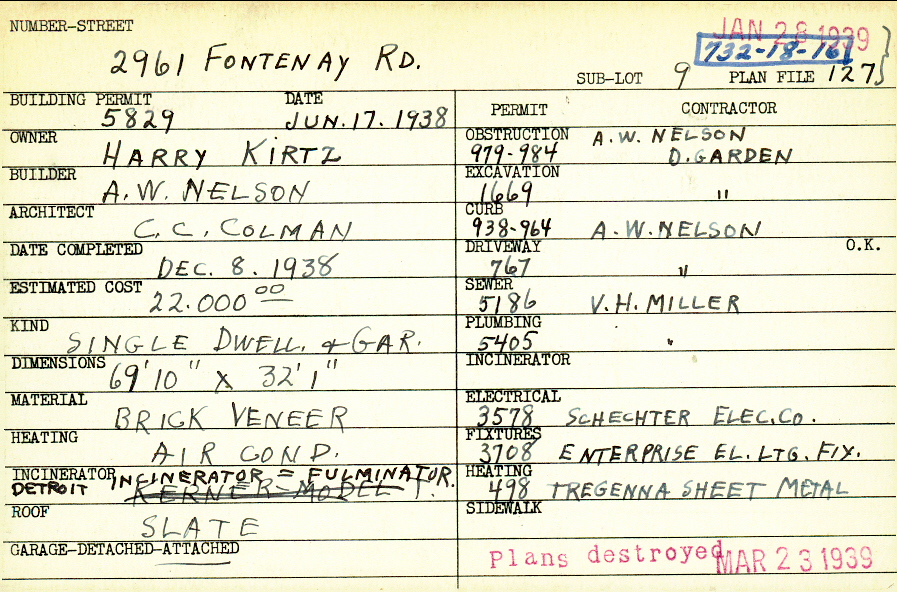 NUMBER-STREET
JAN 28 1939
732-18-16
2961 FONTENAY RD.
SUB-LOT 9 PLAN FILE 127
BUILDING PERMIT DATE
5829 JUN. 17. 1938
OWNER
HARRY KIRTZ
BUILDER
A. W. NELSON
ARCHITECT
C. C. COLMAN
DATE COMPLETED
DEC. 8. 1938
ESTIMATED COST
22.000 00
KIND
SINGLE DWELL. & GAR.
DIMENSIONS
69'10" X 32'1"
MATERIAL
BRICK VENEER
HEATING
AIR COND.
INCINERATOR INCINERATOR = FULMINATOR.
DETROIT KERNER MODEL
ROOF
SLATE
GARAGE-DETACHED-ATTACHED
PERMIT CONTRACTOR
OBSTRUCTION A. W. NELSON
979-984 D. GARDEN
EXCAVATION
1669 "
CURB
938-964 A. W. NELSON
DRIVEWAY O.K.
767 "
SEWER
5186 V. H. MILLER
PLUMBING
5405 "
INCINERATOR
ELECTRICAL
3578 SCHECHTER ELEC. CO.
FIXTURES
3708 ENTERPRISE EL. LTG. FIX.
HEATING
498 TREGENNA SHEET METAL
SIDEWALK
Plans destroyed MAR 23 1939